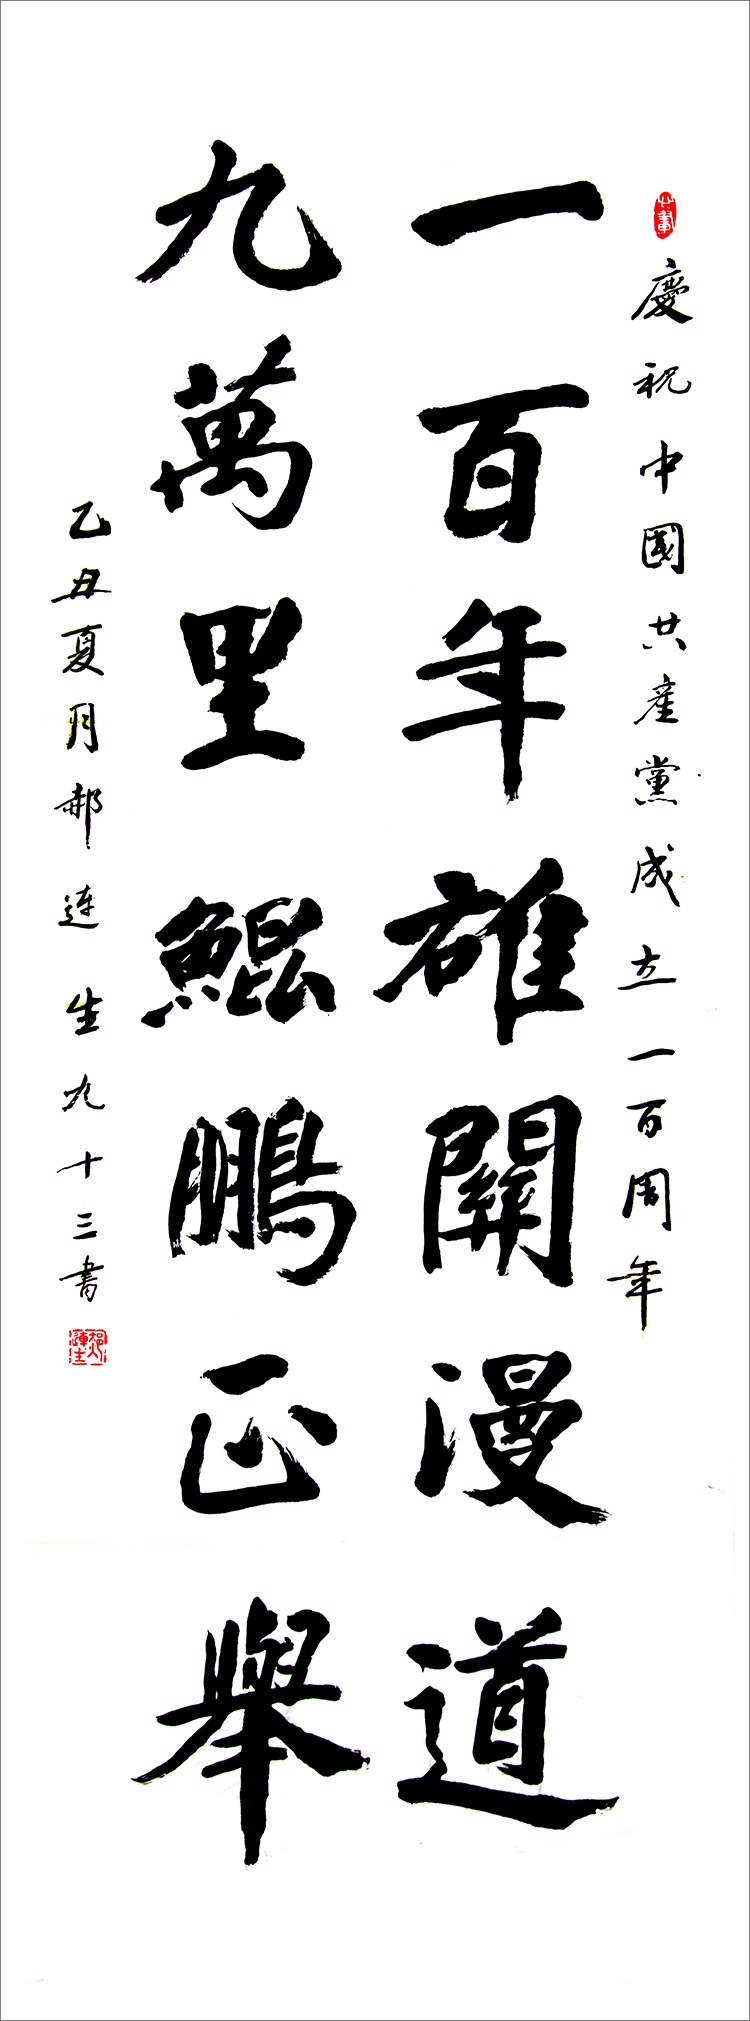 慶祝中國共產黨成立一百周年
一百年雄關漫道
九萬里鯤鵬正舉
乙丑夏月郝連生九十三書